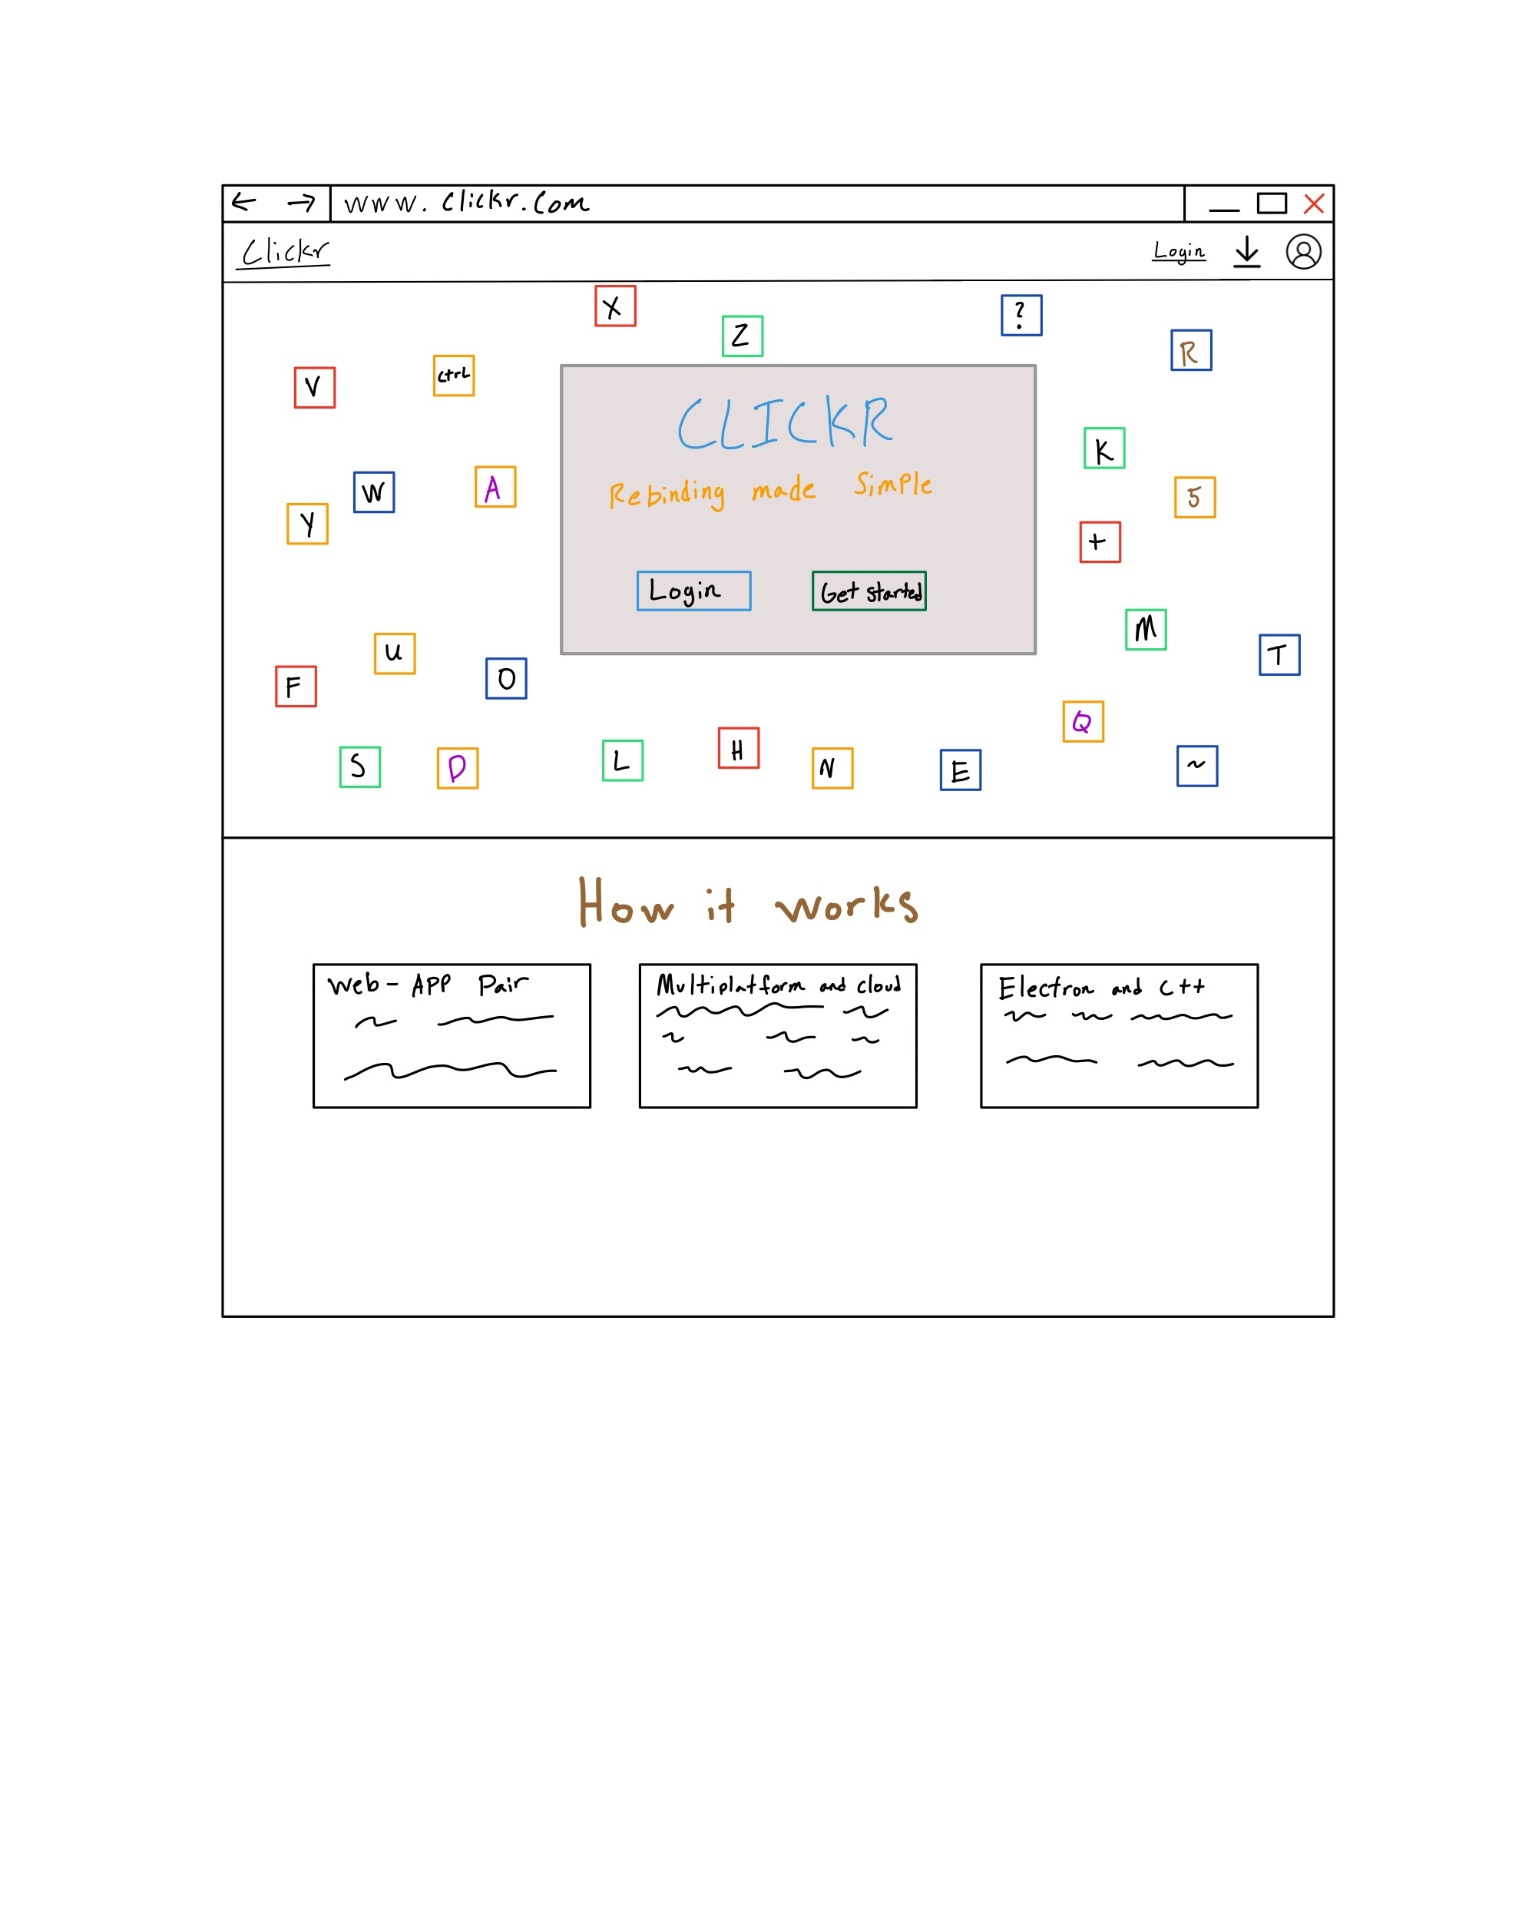 www.Clickr.Com
Clickr
Login
X
Z
?
R
V
Ctrl
K
W
A
5
Y
+
CLICKR
Rebinding made Simple
Login
Get started
M
U
T
F
O
Q
S
D
L
H
N
E
~
How it works
Web-APP Pair
Multiplatform and cloud
Electron and C++